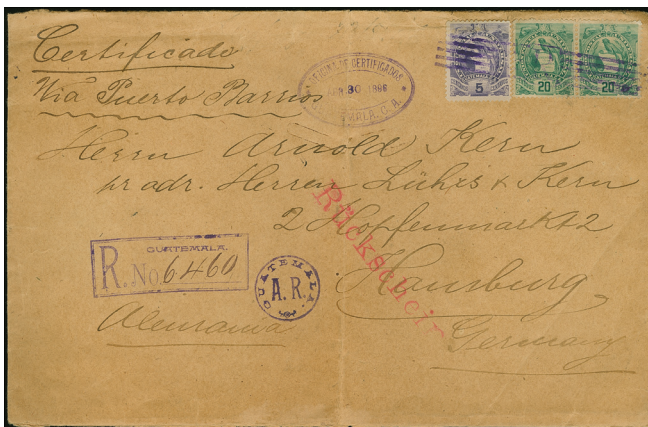 Certificado
Via Puerto Barrios
OFICINA DE CERTIFICADOS
30
GUATEMALA. C. A.
5
20
20
Herrn Arnold Kern
pr adr. Herren Lührs & Kern
2 Hopfenmarkt 2
Hamburg
Germany
Rückschein
GUATEMALA.
R. No. 6460
GUATEMALA.
A. R.
Alemania